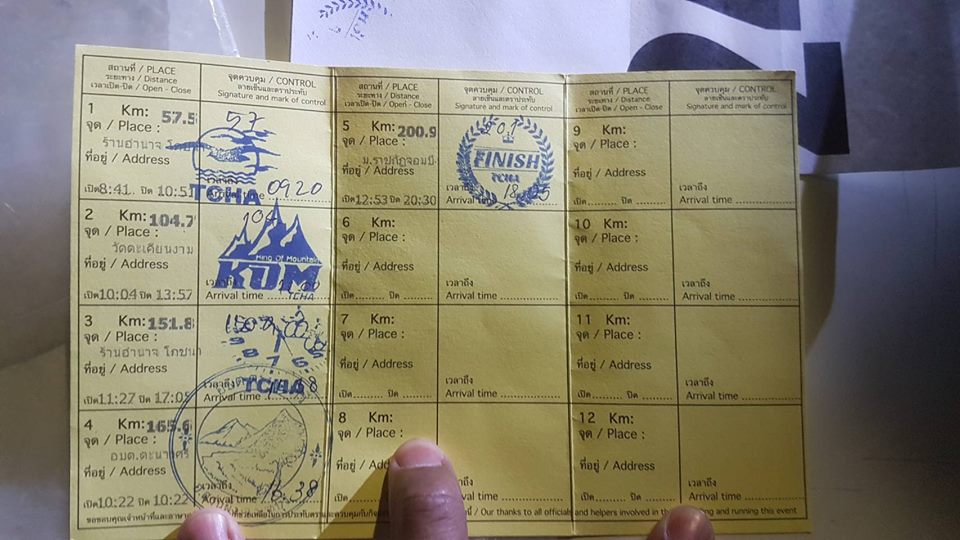 สถานที่ / PLACE
ระยะทาง / Distance
เวลาเปิด-ปิด / Open - Close
จุดควบคุม / CONTROL
ลายเซ็นและตราประทับ
Signature and mark of control
1 Km: 57.5
จุด / Place :
ร้านอำนาจ
ที่อยู่ / Address
เปิด 8:41 ปิด 10:51
57
TCHA
0920
2 Km: 104.7
จุด / Place :
วัดตะเคียนงาม
ที่อยู่ / Address
เปิด 10:04 ปิด 13:57
104
King Of Mountain
KOM
TCHA
เวลาถึง
Arrival time
3 Km: 151.8
จุด / Place :
ร้านอำนาจ โภชนา
ที่อยู่ / Address
เปิด 11:27 ปิด 17:0
TCHA
เวลาถึง
Arrival time
4 Km: 165.6
จุด / Place :
อบต.ตะนาวศรี
ที่อยู่ / Address
เปิด 10:22 ปิด 10:22
เวลาถึง
Arrival time 16.38
สถานที่ / PLACE
ระยะทาง / Distance
เวลาเปิด-ปิด / Open - Close
จุดควบคุม / CONTROL
ลายเซ็นและตราประทับ
Signature and mark of control
5 Km: 200.9
จุด / Place :
ม.ราชภัฏจอมบึง
ที่อยู่ / Address
เปิด 12:53 ปิด 20:30
201
FINISH
TCHA
18.05
6 Km:
จุด / Place :
ที่อยู่ / Address
เปิด ........ ปิด ........
เวลาถึง
Arrival time ....................
7 Km:
จุด / Place :
ที่อยู่ / Address
เปิด ........ ปิด ........
เวลาถึง
Arrival time ....................
8 Km:
จุด / Place :
ที่อยู่ / Add
เปิด
เวลาถึง
Arrival time ....................
สถานที่ / PLACE
ระยะทาง / Distance
เวลาเปิด-ปิด / Open - Close
จุดควบคุม / CONTROL
ลายเซ็นและตราประทับ
Signature and mark of control
9 Km:
จุด / Place :
ที่อยู่ / Address
เปิด ........ ปิด ........
เวลาถึง
Arrival time ....................
10 Km:
จุด / Place :
ที่อยู่ / Address
เปิด ........ ปิด ........
เวลาถึง
Arrival time ....................
11 Km:
จุด / Place :
ที่อยู่ / Address
เปิด ........ ปิด ........
เวลาถึง
Arrival time ....................
12 Km:
จุด / Place :
ที่อยู่ / Address
เปิด ........ ปิด ........
เวลาถึง
Arrival time ....................
ขอขอบคุณเจ้าหน้าที่และอาสา นี้ / Our thanks to all officials and helpers involved in the and running this event